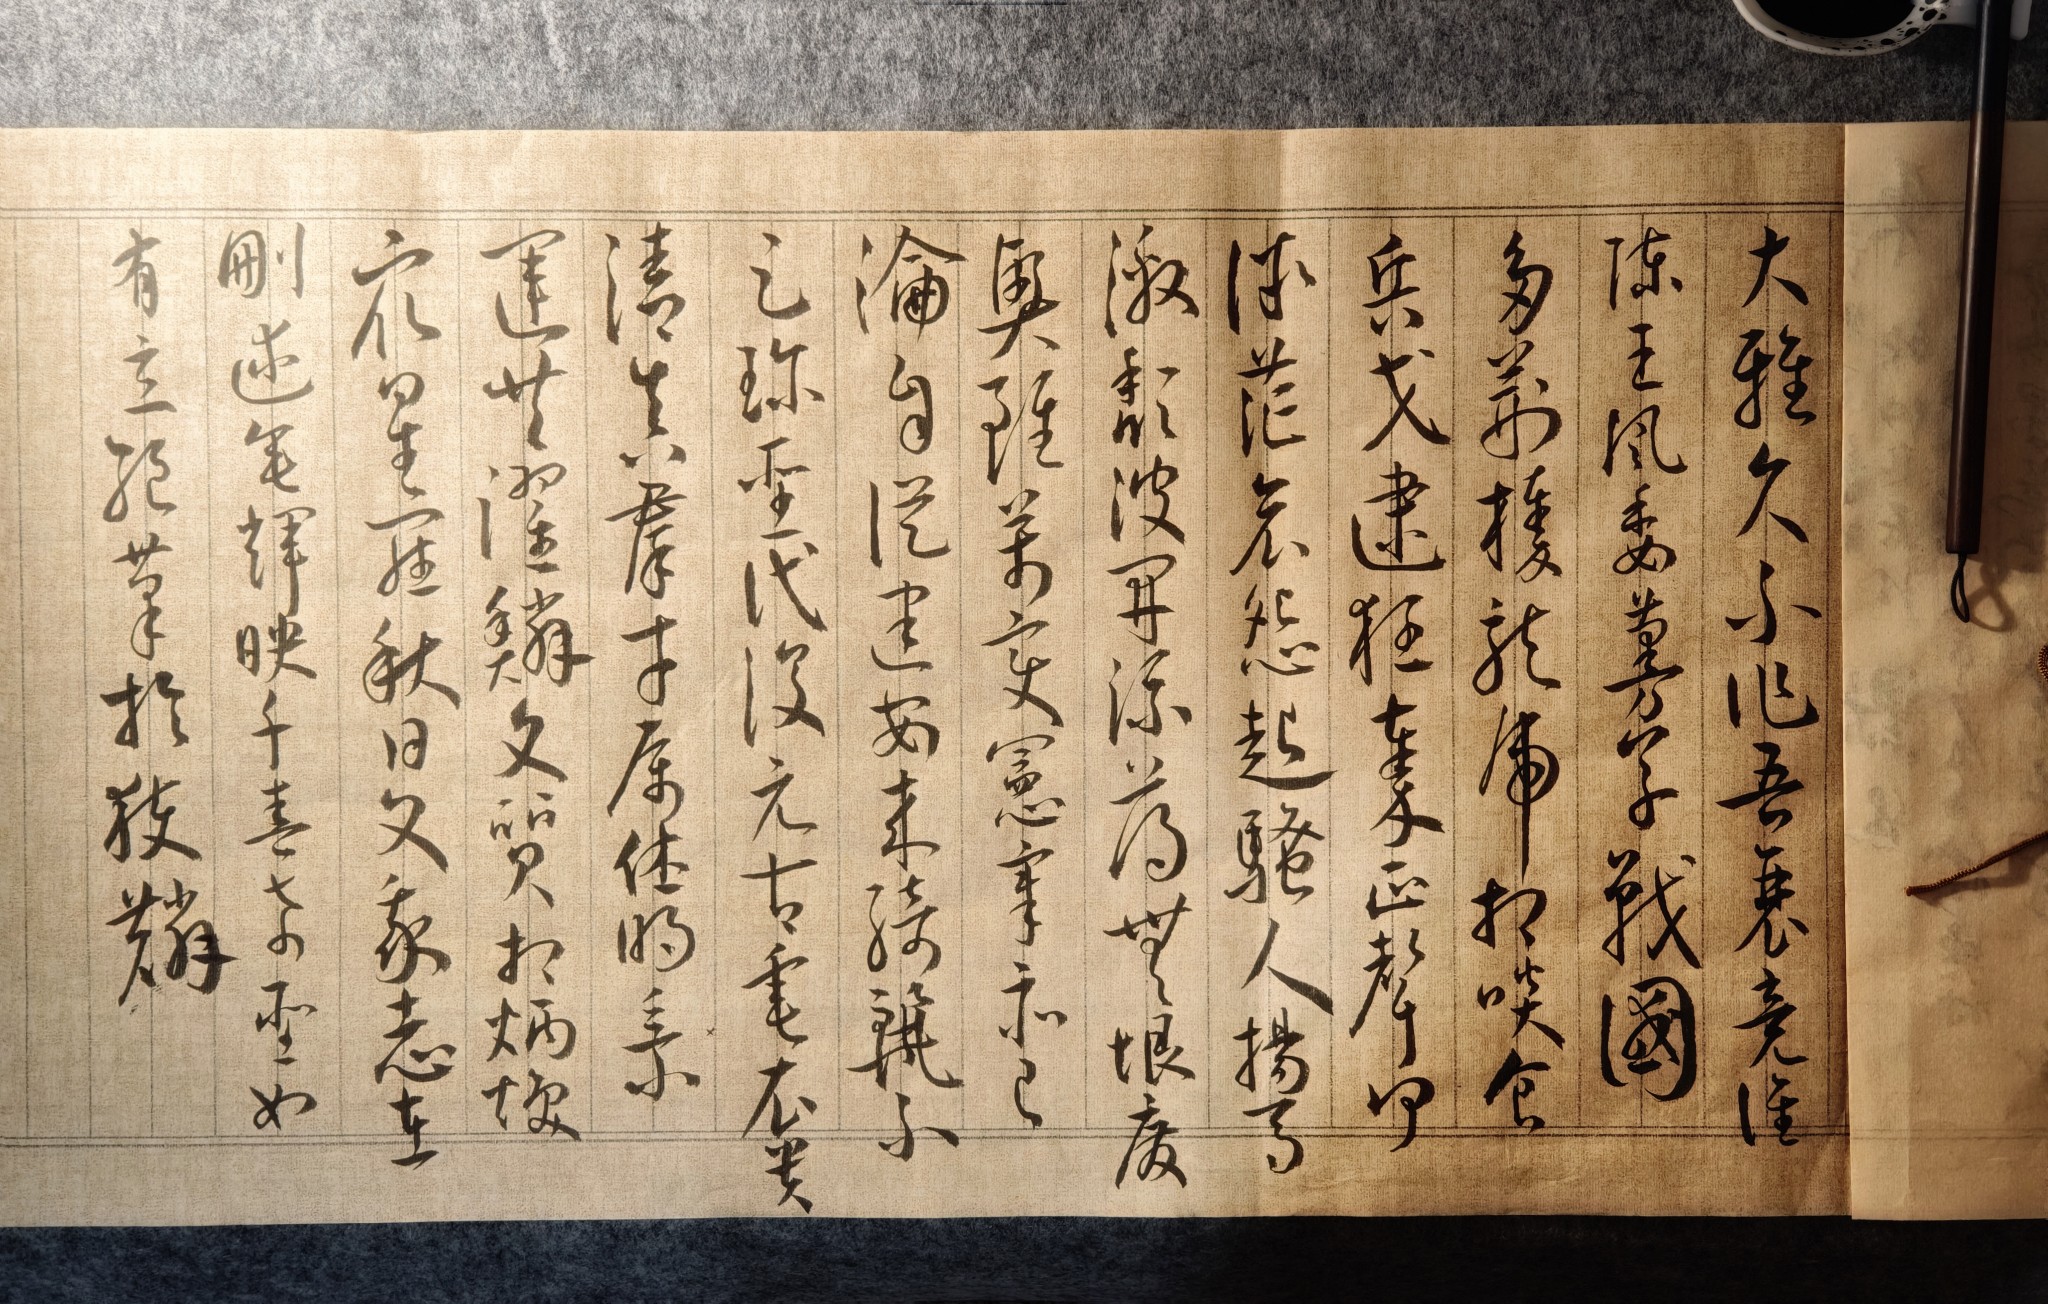 大雅久不作吾衰竟誰
陳王風委蔓草戰國
多荊榛龍虎相啖食
兵戈逮狂秦正聲何
微茫哀怨起騷人揚馬
激頹波開流蕩無垠廢
興雖萬變憲章亦已
淪自從建安來綺麗不
足珍聖代復元古垂衣貴
清真羣才屬休明乘
運共躍鱗文質相炳煥
衆星羅秋旻我志在
刪述垂輝映千春希聖如
有立絕筆於獲麟